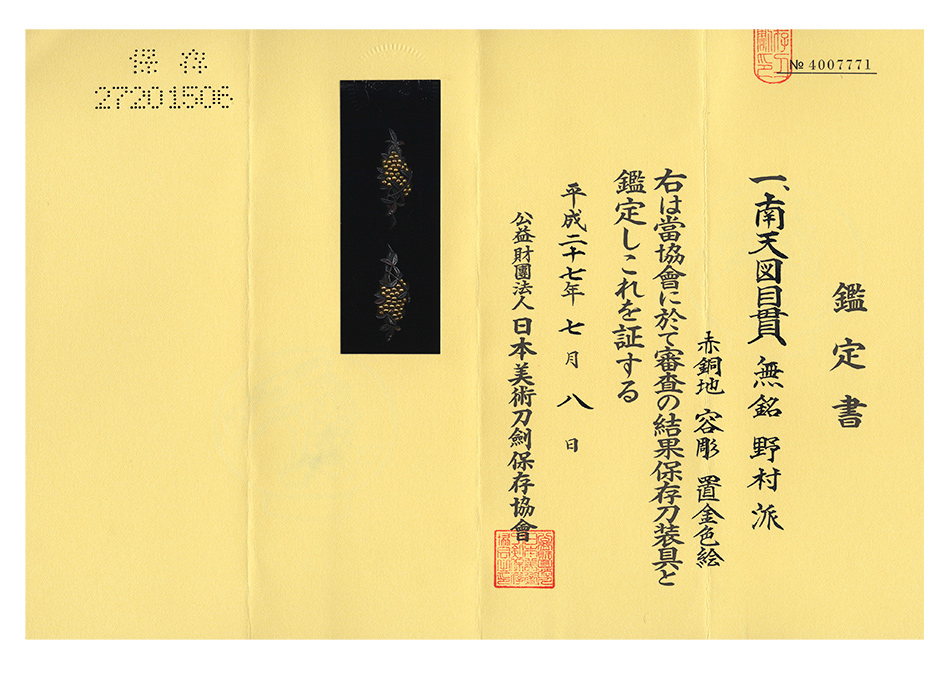 鑑定書
№ 4007771
一、南天図目貫 無銘 野村派
赤銅地 容彫 置金色絵
右は當協會に於て審査の結果保存刀装具と
鑑定しこれを証する
平成二十七年七月八日
公益財團法人 日本美術刀劍保存協會
保存
27201506